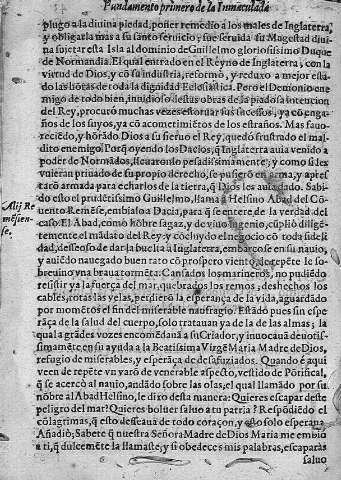 Fundamento primero de la Inmaculada
plugo a la diuina piedad, poner remedio a los males de Inglaterra,
y obligarla mas a su santo seruicio, fue seruida su Magestad diui
na sujetar esta Isla al dominio de Guillelmo gloriosissimo Duque
de Normandia. El qual entrado en el Reyno de Inglaterra, con la
virtud de Dios, y cõ su industria, reformò, y reduxo a mejor esta
do las horas de toda la dignidad Eclesiastica. Pero el Demonio ene
migo de todo bien, inuidioso destas obras de la piadosa intencion
del Rey, procurò muchas vezes estoruar sus sucessos, ya cõ enga
ños de los suyos, ya cõ acometimiẽtos de los estraños. Mas fauo
reciẽdo, y hõrãdo Dios a su sieruo el Rey, quedo frustrado el mal
dito enemigo. Porq̃ oyendo los Dacios, q̃ Inglaterra auia venido a
poder de Normãdos, lleuaronlo pesadissimamente; y como si les
vuieran priuado de su propio derecho, se pusierõ en arma, y apres
tarõ armada para echarlos de la tierra, q̃ Dios les auia dado. Sabi
do esto el prudẽtissimo Guillelmo, llama a Helsino Abad del Cõ
uento Remẽse, embialo a Dacia, para q̃ se entere de la verdad del
caso. El Abad, como hõbre sagaz, y de viuo ingenio, cũplio dilige
temente el mãdato del Rey, y cõcluydo el negocio cõ toda fideli
dad, desseoso de dar la buelta a Inglaterra, embarcose en su nauio,
y auiẽdo nauegado buen rato cõ prospero viento, de repẽte le so
breuino vna braua tormẽta. Cansados los marineros, no pudiẽdo
resistir ya la fuerça del mar, quebrados los remos, deshechos los
cables, rotas las velas, perdierõ la esperança de la vida, aguardãdo
por momẽtos el fin del miserable naufragio. Estãdo pues sin espe
rãça de la salud del cuerpo, solo tratauan ya de la de las almas; la
qual a grãdes vozes encomẽdauã a su Criador, y inuocauã deuotis
simamẽte en su ayuda a la Beatissima Virgẽ Maria Madre de Dios,
refugio de miserables, y esperãça de desafuziados. Quando è aqui
veen de repẽte vn varõ de venerable aspecto, vestido de Põtifical,
q̃ se acercò al nauio, andãdo sobre las olas, el qual llamãdo por su
nõbre al Abad Helsino, le dixo desta manera: Quieres escapar deste
peligro del mar? Quieres boluer saluo a tu patria? Respõdiẽdo el
cõ lagrimas, q̃ esto desseaua de todo coraçon, y esto solo esperaua
Añadiò: Sabete q̃ nuestra Señora Madre de Dios Maria me embio
a ti, q̃ dulcemẽte la llamaste; y si obedeces mis palabras, escaparàs
saluo
Alij Re
mesien-
se.